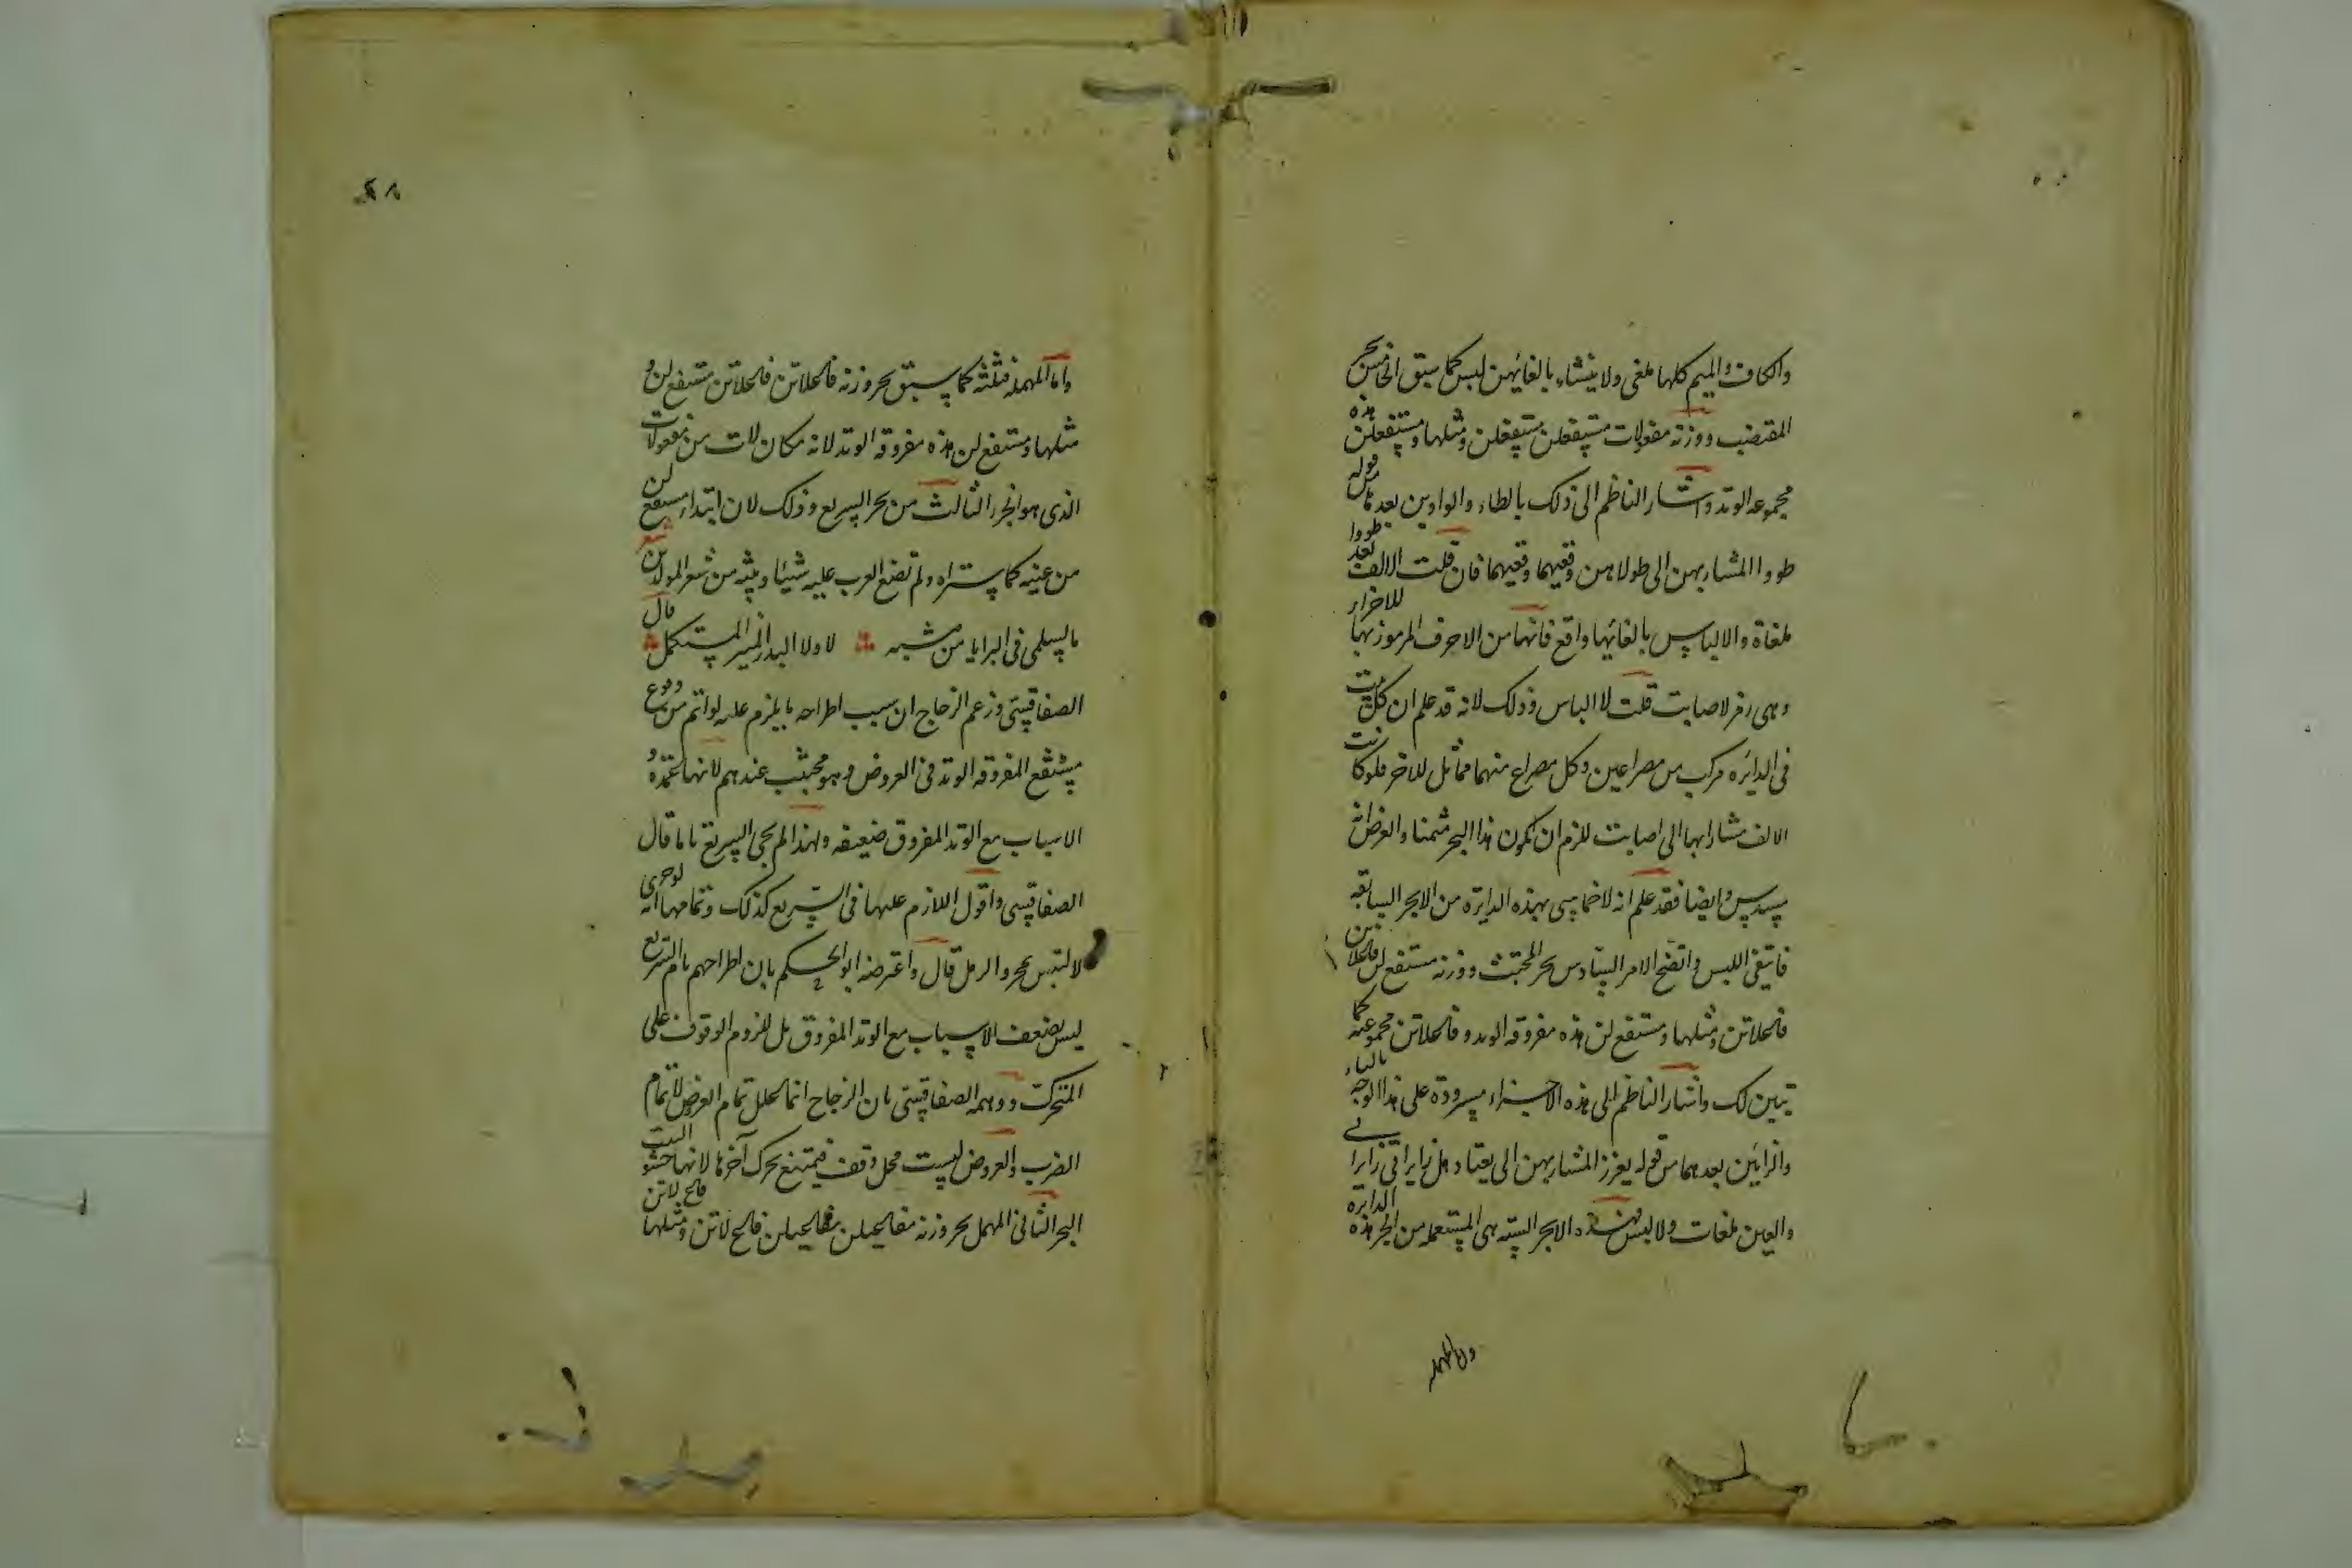 والكاف والميم كلها ملغى ولا ينشاء بالغائهن لبس كما سبق الخامس بحر
المقتضب ووزنه مفعولات مستفعلن مستفعلن ومثلها ومستفعلن هذه
مجموعه الوتد واشار الناظم الى ذلك بالطاء والواوين بعدها من قوله
طووا المشار بهن الى طولاهن وقعيهما وقعيهما فان قلت الالف بعد طووا
ملغاة والالباس بالغائها واقع فانها من الاحرف المرموز بها للاجزاء
وهى رمز لاصابت قلت لا الباس وذلك لانه قد علم ان كل بيت
فى الدائره مركب من مصراعين وكل مصراع منهما مماثل للاخر فلو كانت
الالف مشارا بها الى اصابت للزم ان يكون هذا البحر مثمنا والغرض انه
مسدس وايضا فقد علم انه لا خماسى بهذه الدايرة من الابحر السابقه
فانتفى اللبس واتضح الامر السادس بحر المجتث ووزنه مستفع لن فاعلاتن
فاعلاتن ومثلها ومستفع لن هذه مفروقه الوتد وفاعلاتن مجموعته كما
تبين لك واشار الناظم الى هذه الاجزاء مسرودة على هذا الوجه بالياء
والزايين بعدهما من قوله يعزز المشار بهن الى يعتاد هل زايرا فى زايرا فى
والعين ملغات ولا لبس فهذه الابحر السته هى المستعمله من ابحر هذه الدايره
واما المهمله
واما المهمله فثلثه كما سبق بحر وزنه فاعلاتن فاعلاتن مستفع لن و
مثلها ومستفع لن هذه مفروقه الوتد لانه مكان لات من مفعولات
الذى هو الجزء الثالث من بحر السريع وذلك لان ابتداء مستفع لن
من عينه كما ستراه ولم تضع العرب عليه شيئا وبيته من شعر المولدين شعر
ما لسلمى فى البرايا من مشبه لا ولا البدر المنير المستكمل قال
الصفاقسى وزعم الزجاج ان سبب اطراحه ما يلزم عليه لو اتم من وقوع
مستفع المفروقه الوتد فى العروض وهو مجتنب عندهم لانها عمدة و
الاسباب مع الوتد المفروق ضعيفه ولهذا لم يجئ السريع تاما قال
الصفاقسى واقول اللازم عليها فى السريع كذلك وتمامها انه لو جرى
لالتبس بحر والرمل قال واعترضه ابو الحكم بان اطراحهم تام السريع
ليس لضعف الاسباب مع الوتد المفروق بل للزوم الوقوف على
المتحرك ووهمه الصفاقسى بان الزجاج انما علل تمام العروض لا تمام
الضرب والعروض ليست محل وقف فيمتنع تحرك آخرها لانها حشو البيت
البحر الثانى المهمل بحر وزنه مفاعيلن مفاعيلن فاع لاتن ومثلها فاع لاتن